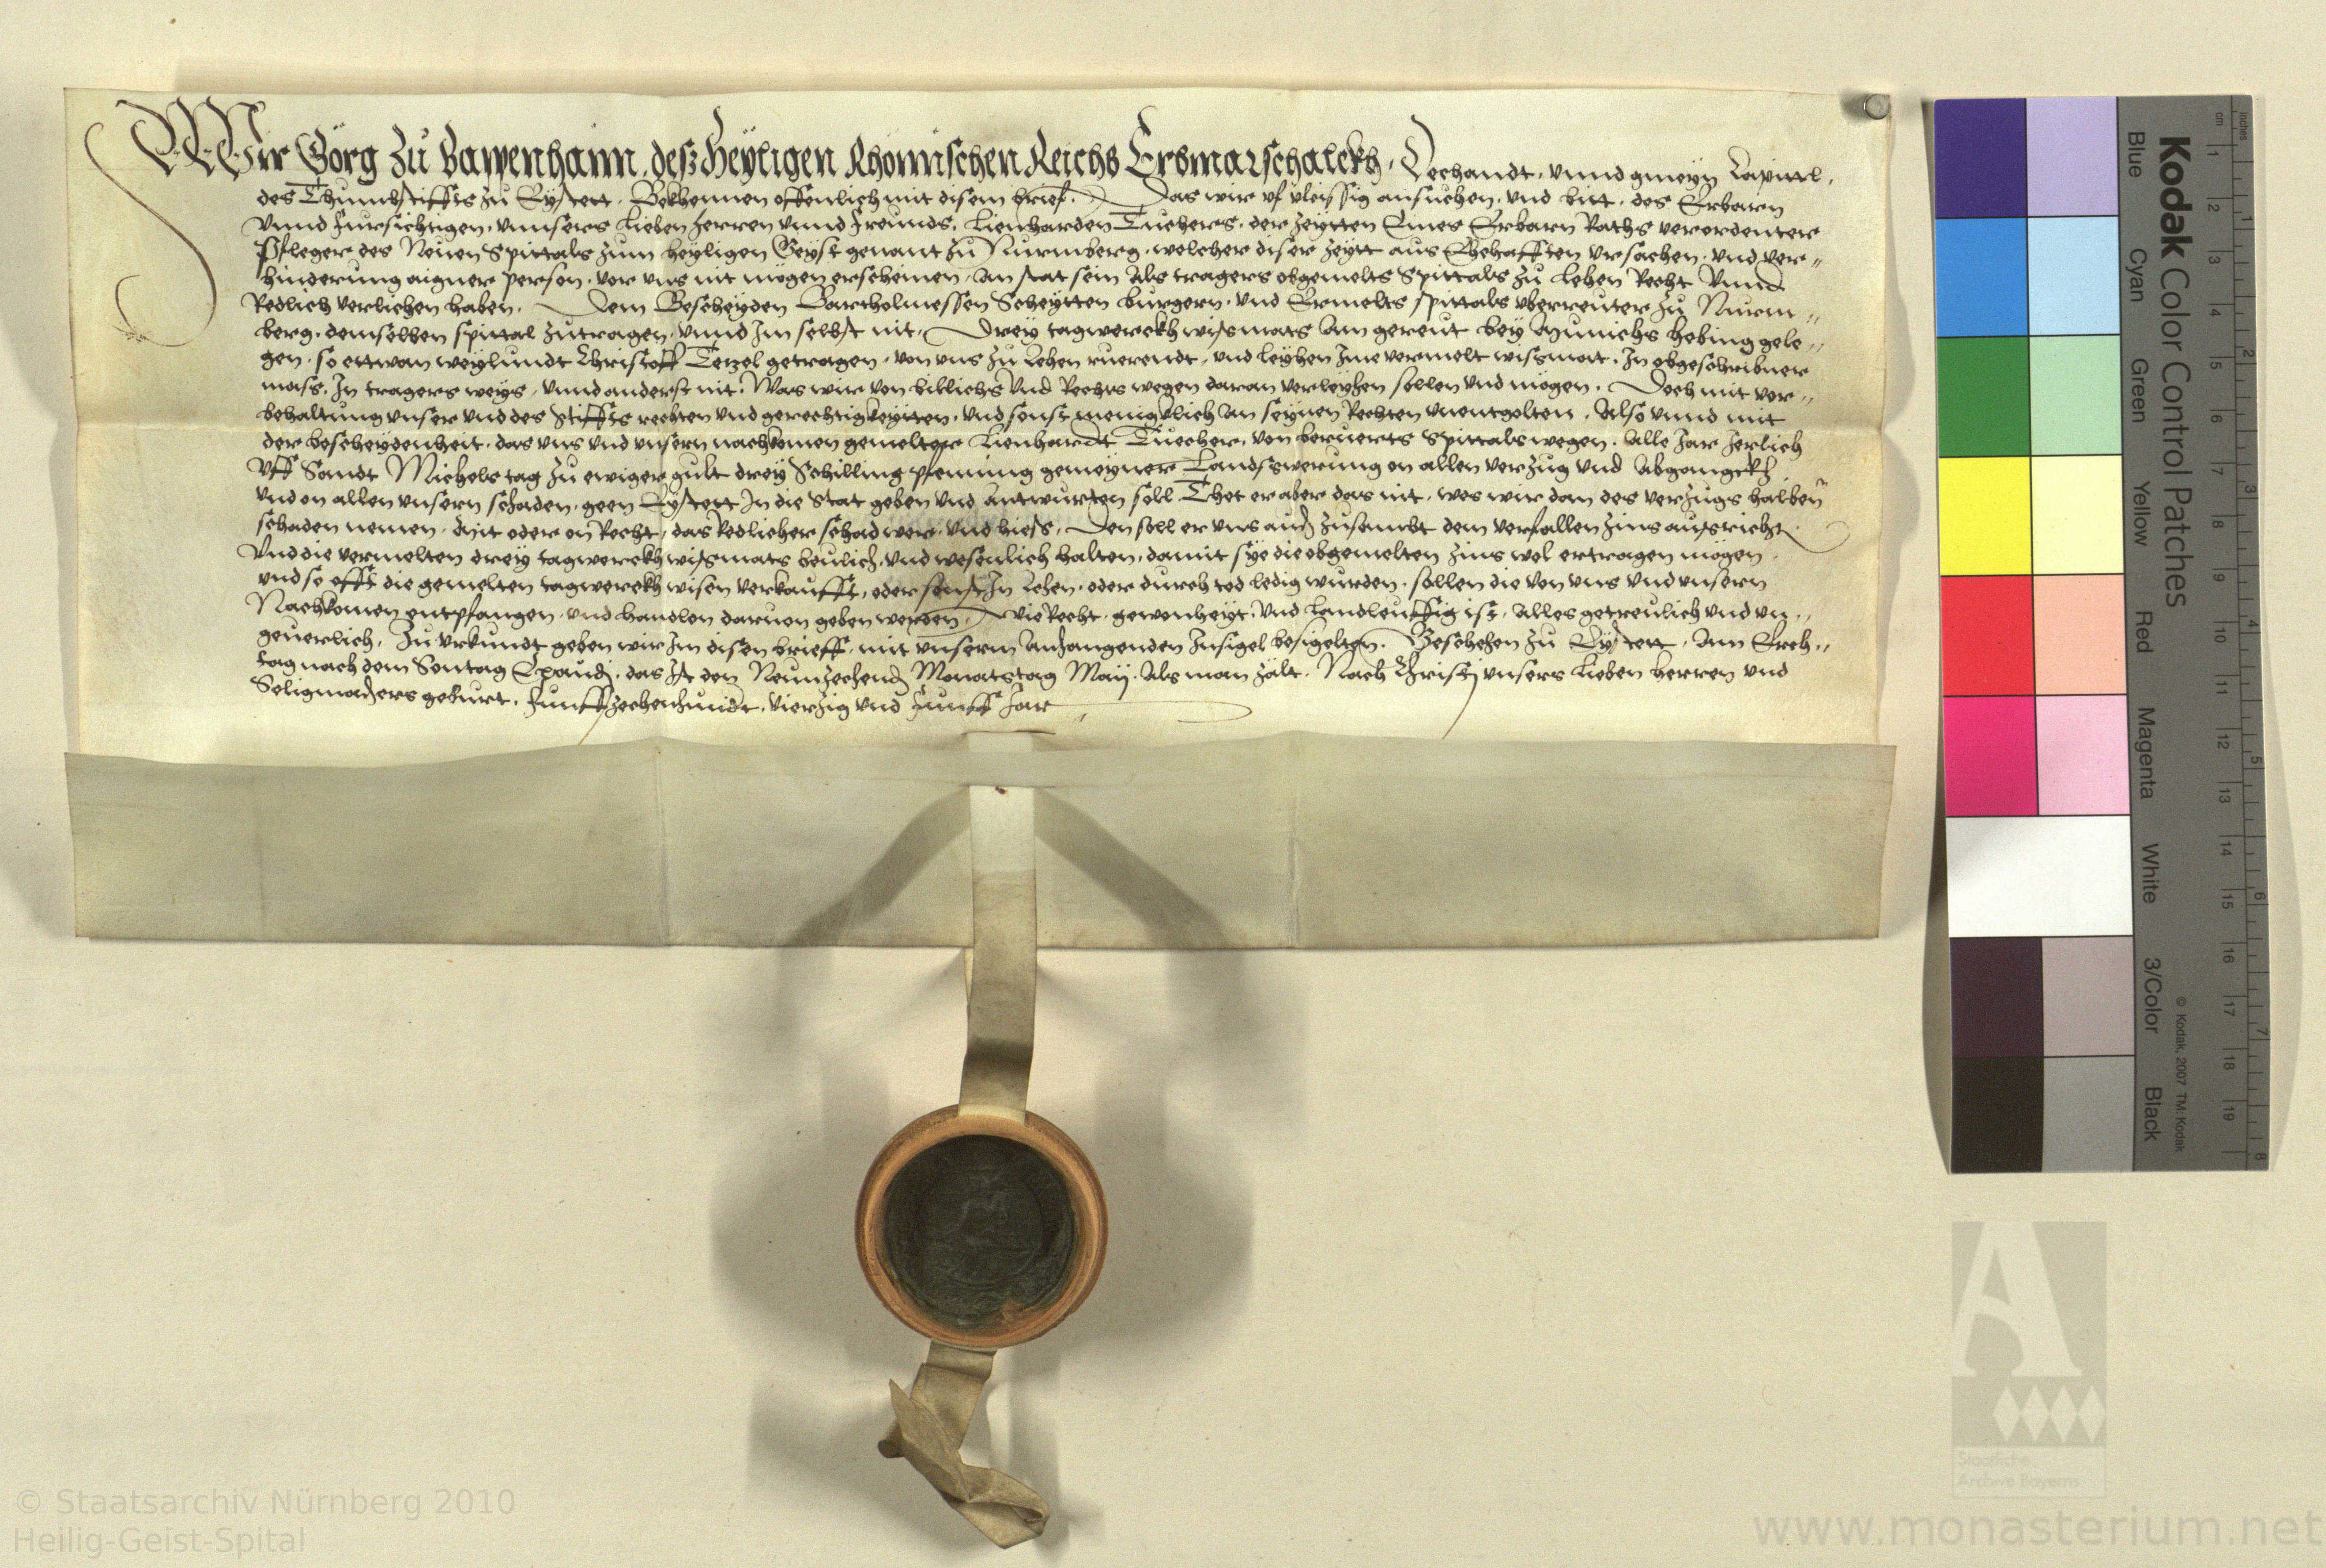 Wir Görg zu Bappenhaim, desz Heyligen Rhömischen Reichs Erbmarschalckh, Dechandt, vnnd gmeyn Capittl,
des Thumbstiffts zu Eystett, Bekhennen offenlich mit disem brief. Das wir vf vleissig ansuchen, vnd bitt, des Erbarn
vnnd Fursichtigen, vnnsers Lieben herren vnnd Freunds, Lienharden Tuchers, der zeytten Eines Erbarn Raths verordenter
Pfleger des Neuen Spittals zum heyligen Geyst genant zu Nurmberg, welcher diser zeytt aus Ehehafften vrsachen, vnd ver„
hinderung aigner person, vor vns nit mögen erscheinen, An stat sein Als tragers obgemelts Spittals zu Lehen Recht Vnnd
Redlich verlichen haben. Dem Bescheyden Bartholmessen Scheytten burgern, vnd Ermelts spittals vberreuter zu Nurm„
berg, demselben spittal zutragen, vnnd Im selbst nit, Drey tagwerckh wismats Am gereut bey Munichs hebing gele„
gen, so ettwan weylundt Christoff Tetzel getragen, von vns zu Lehen ruerendt, vnd leyhen Ime vermelt wismat, In obgeschribner
mass, In tragers weys, vnnd anderst nit, Was wir von billichs vnd Rechts wegen daran verleyhen sollen vnd mögen, Doch mit vor„
behaltung vnser vnd des Stiffts rechten vnd gerechtigkeytten, vnd sonst meniglich An seynen Rechten vnentgolten, Also vnnd mit
der bescheydenheit, das vns vnd vnsern nachkomen gemelter Lienhardt Tuecher, von beruerts Spittals wegen, Alle Jar Jerlich
vff Sandt Michels tag zu ewiger gult drey Schilling pfenning gemeyner Landswerung on allen verzug vnd Abgangckh
vnd on allen vnsern schaden, geen Eystett In die Stat geben vnd Antwurten soll, Thet er aber das nit, wes wir dan des verzugs halben
schaden nemen, Mit oder on Recht, das Redlicher schad wer, vnd hiess, Den soll er vns auch zusambt dem verfallen zins ausricht
Vnd die vermelten drey tagwerckh wismats beulich, vnd wesenlich halten, damit sye die obgemelten zins wol ertragen mögen
vnd so offt die gemelten tagwerckh wisen verkaufft, oder sonst In Lehen, oder durch tod ledig wurden, sollen die von vns vnd vnsern
Nachkomen entpfangen, vnd handlon daruon geben werden, Wie Recht, gewonheyt, vnd Landleuffig ist, Alles getreulich vnd vn„
geuerlich, Zu vrkundt geben wir Im disen brieff, mit vnserm Anhangenden Insigel besigelten. Geschehen zu Eystett, Am Erch„
tag nach dem Sontag Exaudi, das Ist den Neunzechend Monatstag Maij, Als man zalt, Nach Christj vnsers Lieben herren vnd
Seligmachers geburt, Funffzechenhundt, vierzig vnd Funff Jar
Kodak Color Control Patches
Blue Cyan Green Yellow Red Magenta White 3/Color Black
© Kodak, 2007 TM: Kodak
cm 1 2 3 4 5 6 7 8 9 10 11 12 13 14 15 16 17 18 19
inches 1 2 3 4 5 6 7 8
Staatliche
Archive Bayerns
© Staatsarchiv Nürnberg 2010
Heilig-Geist-Spital
www.monasterium.net